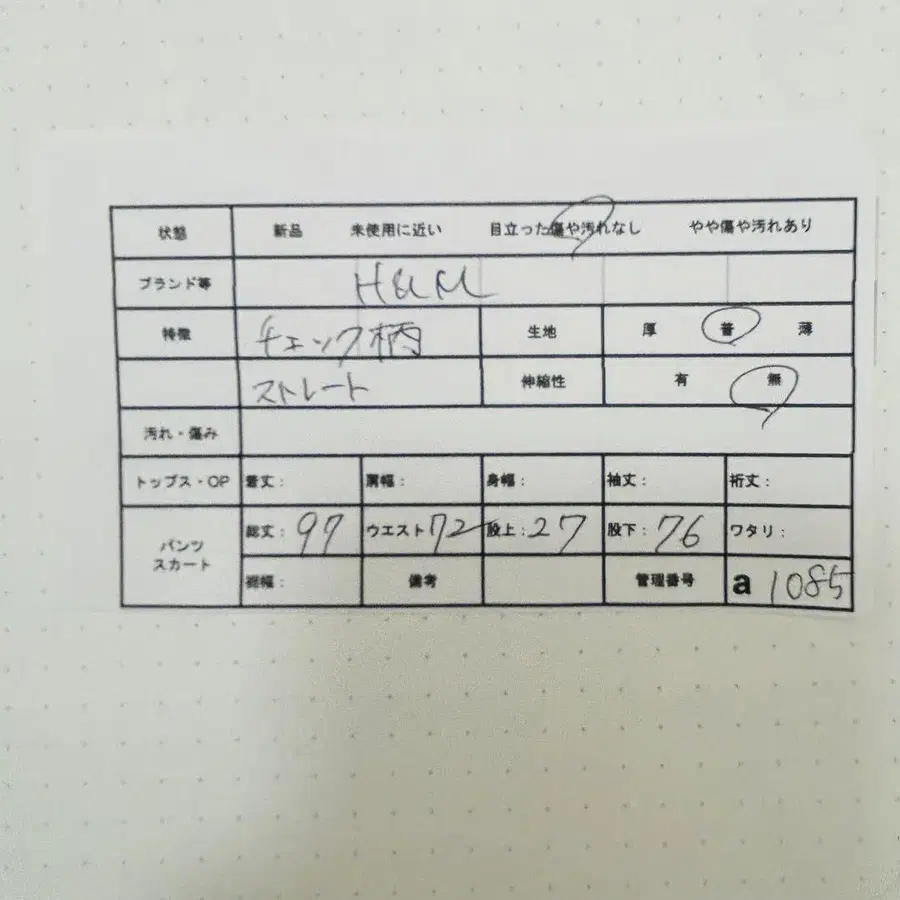 状態 新品 未使用に近い 目立った傷や汚れなし やや傷や汚れあり
ブランド等 H&M
特徴 チェック柄 生地 厚 普 薄
ストレート 伸縮性 有 無
汚れ・傷み
トップス・OP 着丈： 肩幅： 身幅： 袖丈： 裄丈：
パンツ スカート 総丈：97 ウエスト72 股上：27 股下：76 ワタリ：
裾幅： 備考 管理番号 a 1085